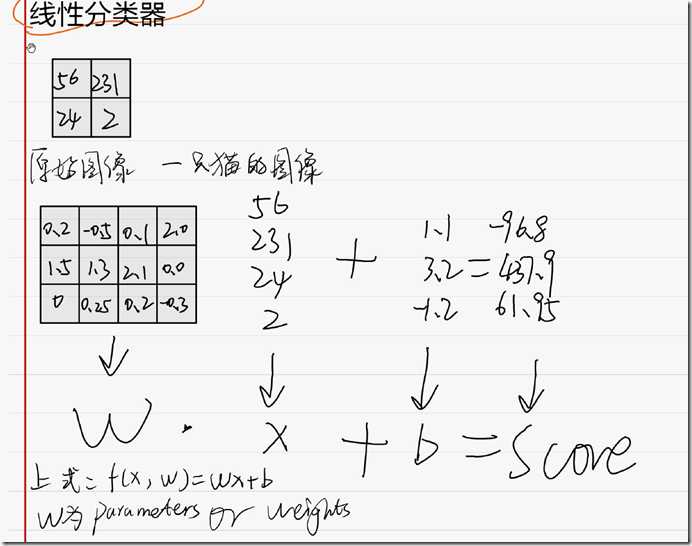 线性分类器
56 231
24 2
原始图像 一只猫的图像
56
0.2 -0.5 0.1 2.0 231 1.1 -96.8
1.5 1.3 2.1 0.0 24 + 3.2 = 437.9
0 0.25 0.2 -0.3 2 -1.2 61.95
W · x + b = Score
上式: f(x, w)=wx+b
W为 parameters or weights